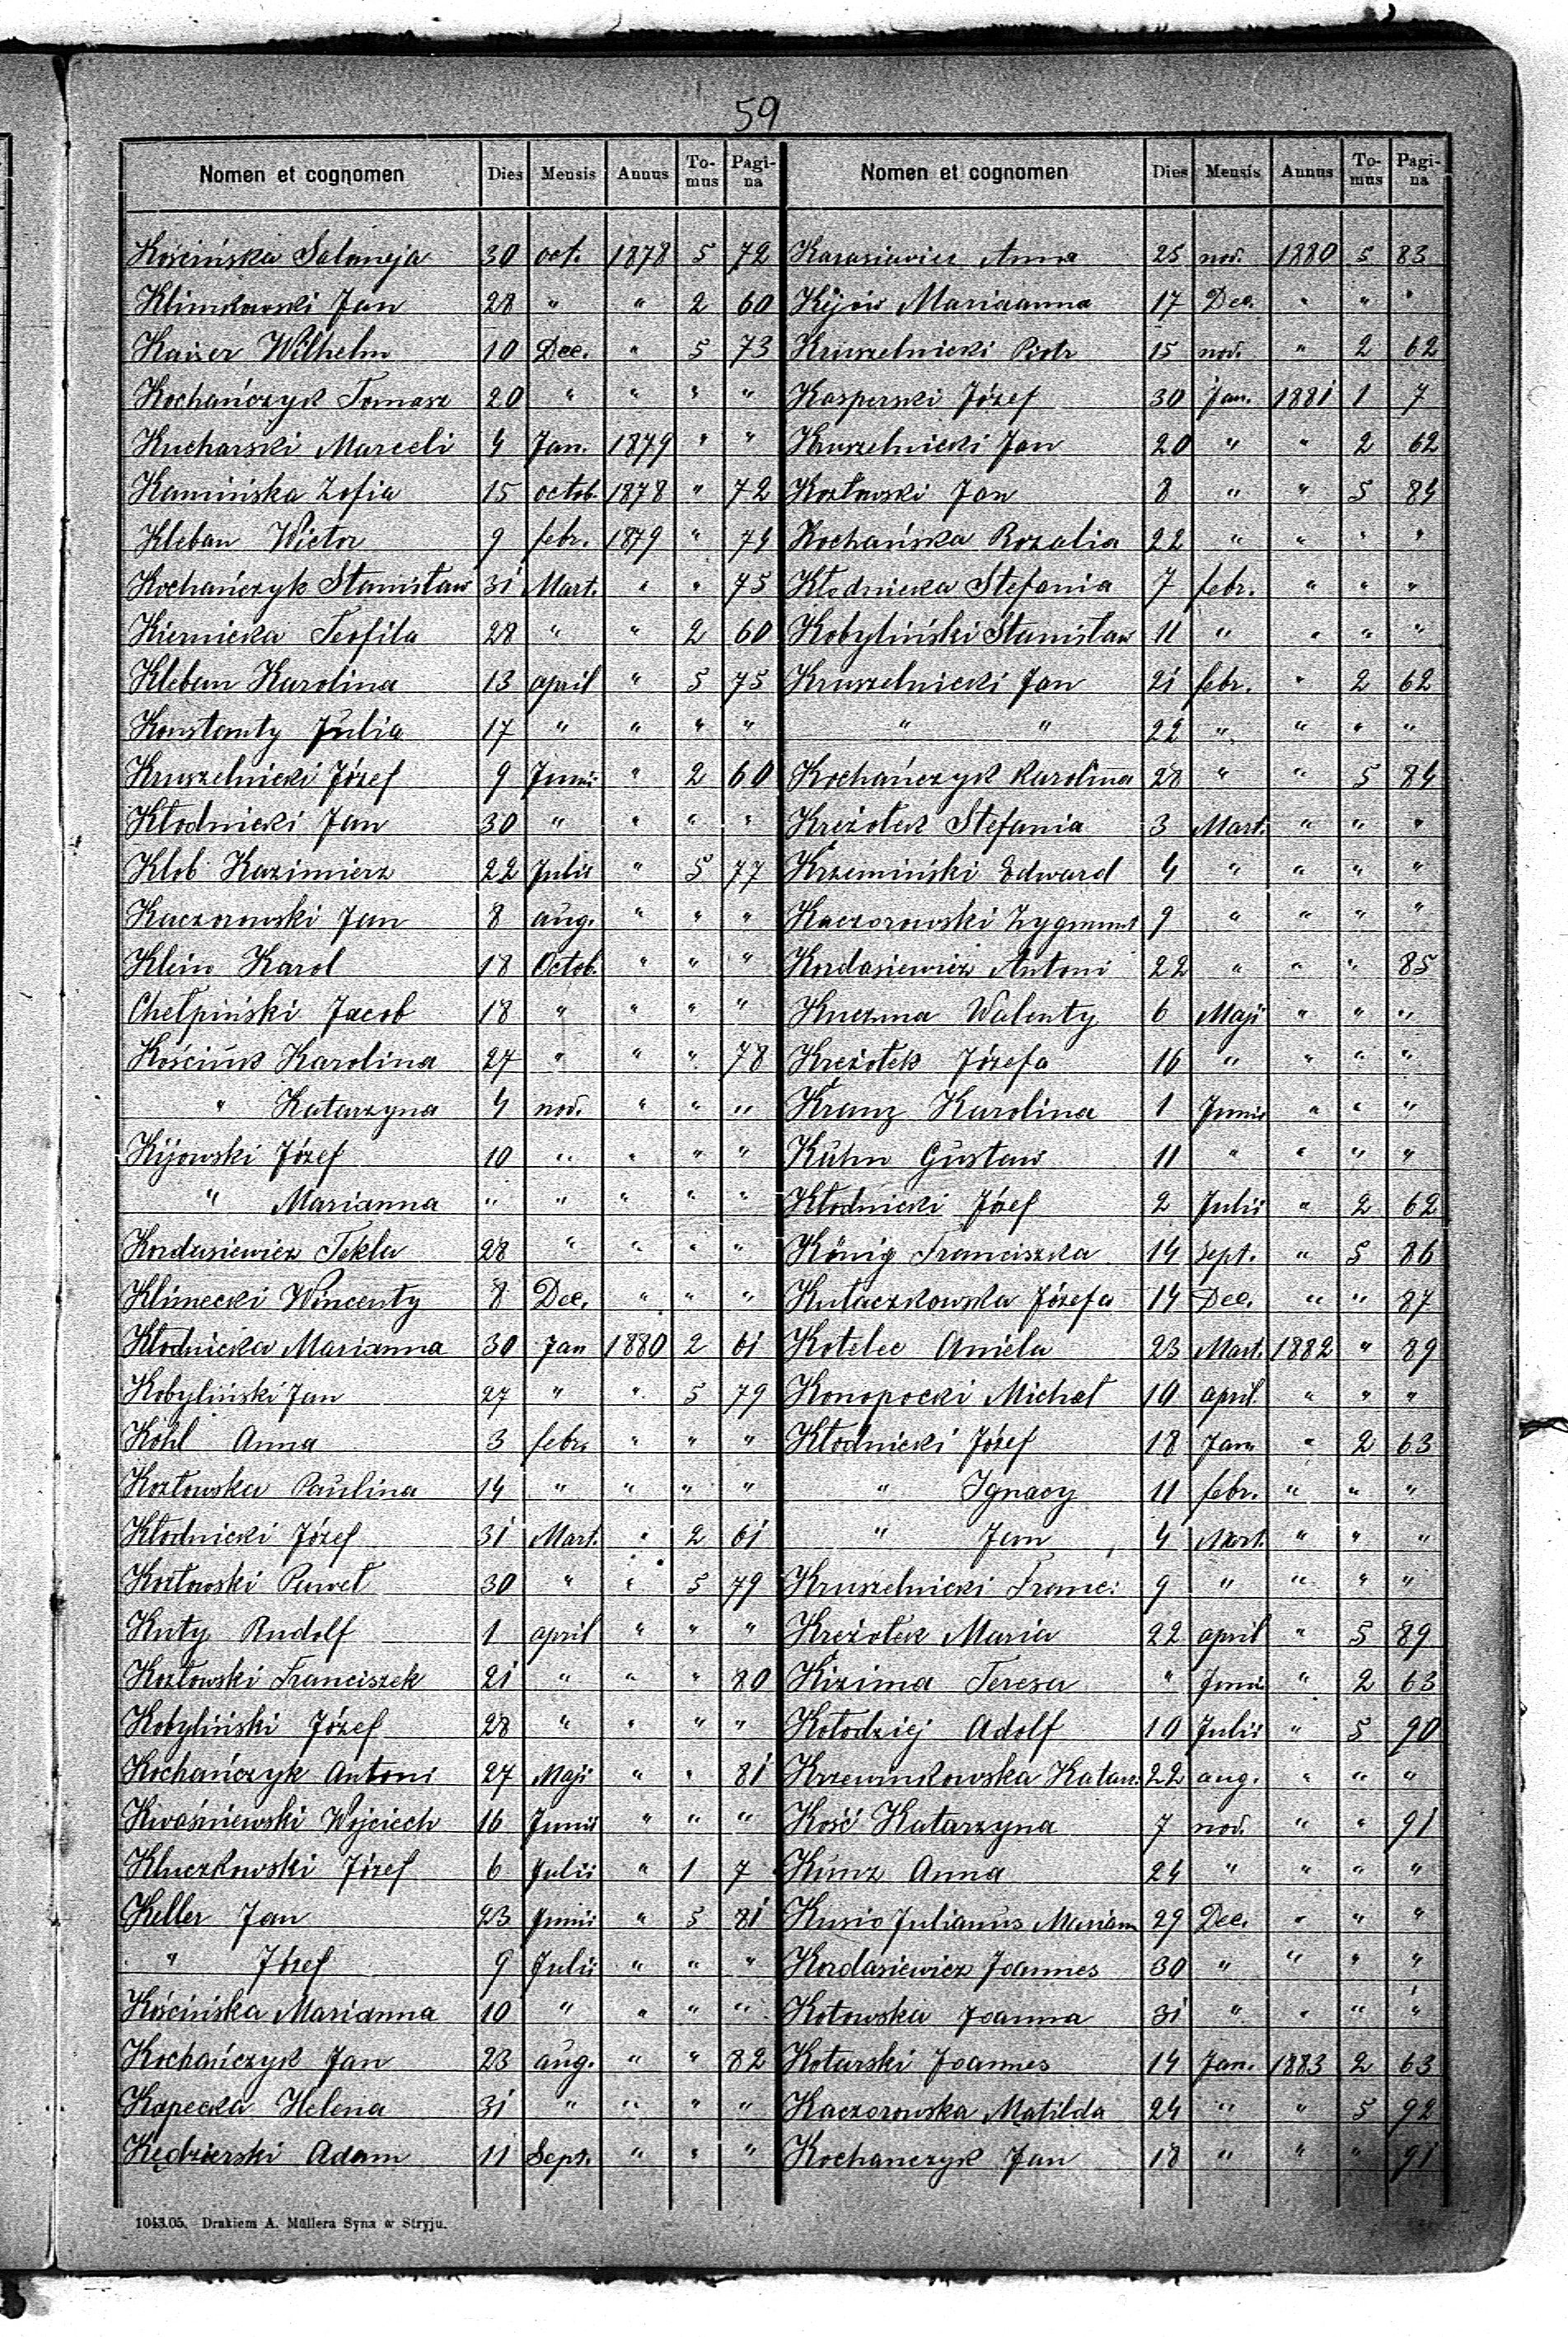 59
Nomen et cognomen Dies Mensis Annus To-mus Pagi-na
Kościńska Salomeja 30 oct. 1878 5 72
Klimkowski Jan 28 " " 2 60
Kaizer Wilhelm 10 Dec. " 5 73
Kochańczyk Tomasz 20 " " " "
Kucharski Marceli 4 Jan. 1879 " "
Kamińska Zofia 15 octob. 1878 " 72
Kleban Wictor 9 febr. 1879 " 74
Kochańczyk Stanisław 31 Mart. " " 75
Kiernicka Teofila 28 " " 2 60
Kleban Karolina 13 april " 5 75
Konstanty Julia 17 " " " "
Kruszelnicki Józef 9 Junii " 2 60
Kłodnicki Jan 30 " " " "
Klob Kazimierz 22 Julii " 5 77
Kaczorowski Jan 8 aug. " " "
Klein Karol 18 Octob. " " "
Chełpiński Jacob 18 " " " "
Kościuk Karolina 27 " " " 78
" Katarzyna 4 nov. " " "
Kijowski Józef 10 " " " "
" Marianna " " " " "
Kordasiewicz Tekla 28 " " " "
Klimecki Wincenty 8 Dec. " " "
Kłodnicka Marianna 30 Jan 1880 2 61
Kobyliński Jan 27 " " 5 79
Köhl Anna 3 febr. " " "
Kozłowska Paulina 14 " " " "
Kłodnicki Józef 31 Mart. " 2 61
Kozłowski Paweł 30 " " 5 79
Kuty Rudolf 1 april " " "
Kozłowski Franciszek 21 " " " 80
Kobyliński Józef 28 " " " "
Kochańczyk Antoni 27 Maji " " 81
Kwaśniewski Wojciech 16 Junii " " "
Kluczkowski Józef 6 Julii " 1 7
Keller Jan 23 Junii " 5 81
" Józef 9 Julii " " "
Kościńska Marianna 10 " " " "
Kochańczyk Jan 23 aug. " " 82
Kopecka Helena 31 " " " "
Kędzierski Adam 11 Sept. " " "
1043.05. Drukiem A. Müllera Syna w Stryju.
Nomen et cognomen Dies Mensis Annus To-mus Pagi-na
Karasiewicz Anna 25 nov. 1880 5 83
Kijów Mariaanna 17 Dec. " " "
Kruszelnicki Piotr 15 nov. " 2 62
Kasperski Józef 30 Jan. 1881 1 7
Kruszelnicki Jan 20 " " 2 62
Kozłowski Jan 8 " " 5 84
Kochańska Rozalia 22 " " " "
Kłodnicka Stefania 7 febr. " " "
Kobyliński Stanisław 11 " " " "
Kruszelnicki Jan 21 febr. " 2 62
" " 22 " " " "
Kochańczyk Karolina 28 " " 5 84
Kreżołek Stefania 3 Mart. " " "
Krzemiński Edward 4 " " " "
Kaczorowski Zygmunt 9 " " " "
Kordasiewicz Antoni 22 " " " 85
Kuczma Walenty 6 Maji " " "
Kreżołek Józefa 16 " " " "
Kranz Karolina 1 Junii " " "
Kühn Gustaw 11 " " " "
Kłodnicki Józef 2 Julii " 2 62
König Franciszka 14 Sept. " 5 86
Kułaczkowska Józefa 14 Dec. " " 87
Kotelec Aniela 23 Mart. 1882 " 89
Konopocki Michał 10 april. " " "
Kłodnicki Józef 18 Jan " 2 63
" Ignacy 11 febr. " " "
" Jan 4 Mart. " " "
Kruszelnicki Franc: 9 " " " "
Kreżołek Maria 22 april " 5 89
Kizima Teresa " Junii " 2 63
Kołodziej Adolf 10 Julii " 5 90
Krzewinkowska Katarz: 22 aug. " " "
Kość Katarzyna 7 nov. " " 91
Kunz Anna 24 " " " "
Kusio Julianus Mariam 29 Dec. " " "
Kordasiewicz Joannes 30 " " " "
Kotowska Joanna 31 " " " "
Kotarski Joannes 14 Jan. 1883 2 63
Kaczorowska Matilda 24 " " 5 92
Kochanczyk Jan 18 " " " 91